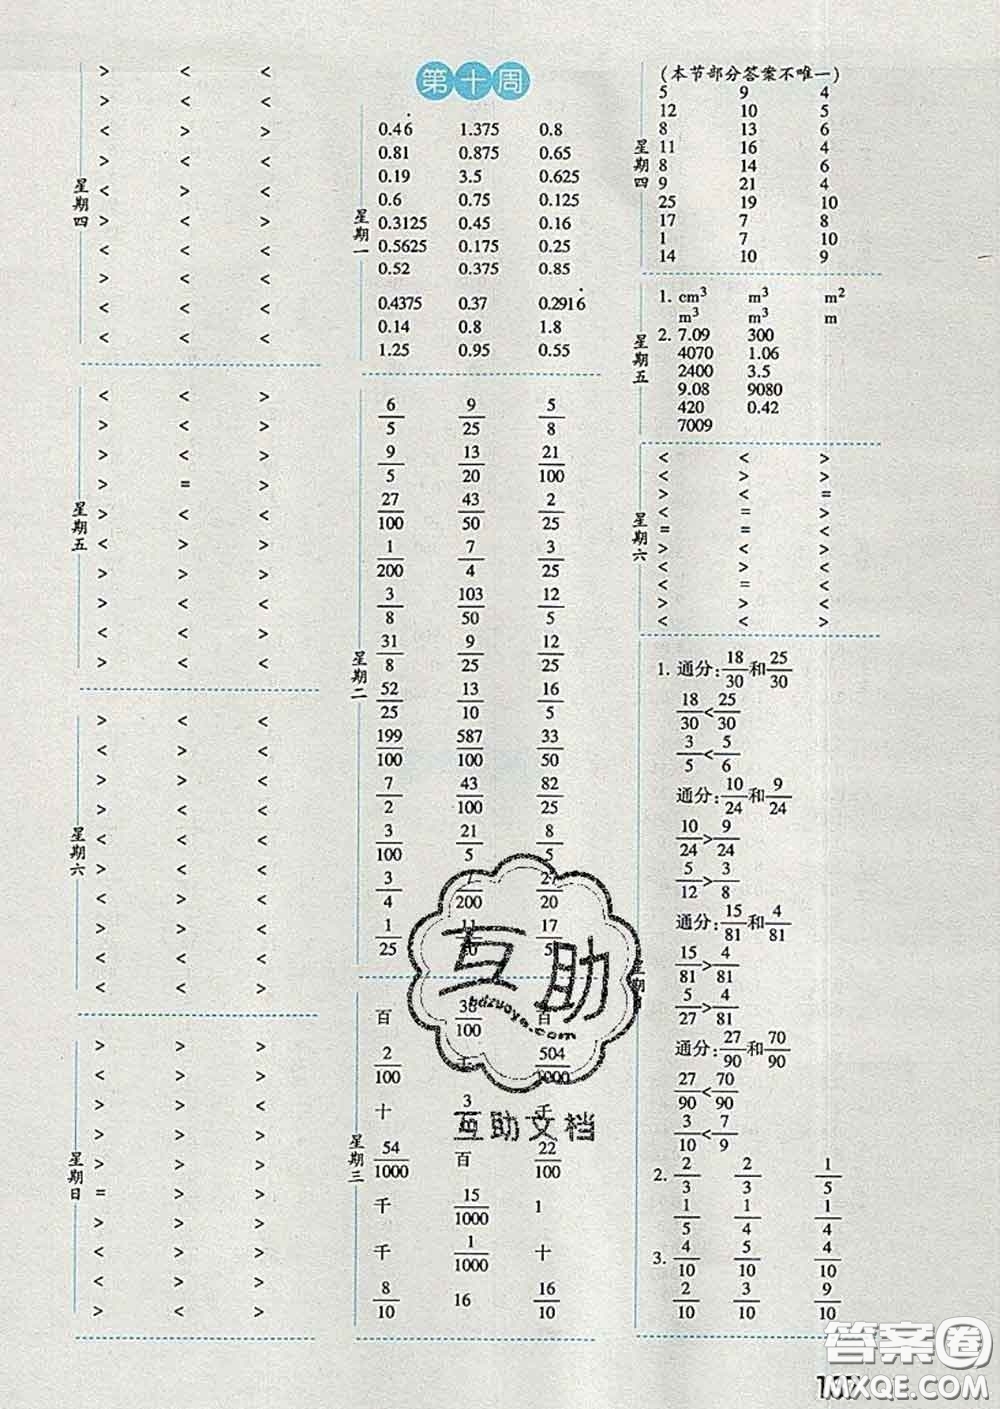 星期四
> < <
> < <
< < >
> < <
< < >
< > <
< < <
> < <
< < <
< < <
星期五
< < >
> < >
> < >
> = >
> < <
< < >
> < <
> < <
> < <
> < >
星期六
> > <
< < <
< < <
< < <
< < <
> < <
< < <
> < <
< < <
> < <
星期日
> > >
< > >
< > >
< > >
< > <
= > >
> > >
< > >
< > >
> < >
第十周
星期一
0.46 1.375 0.8
0.81 0.875 0.65
0.19 3.5 0.625
0.6 0.75 0.125
0.3125 0.45 0.16
0.5625 0.175 0.25
0.52 0.375 0.85
0.4375 0.37 0.2916̇
0.14 0.8 1.8
1.25 0.95 0.55
星期二
6/5 9/25 5/8
9/5 13/20 21/100
27/100 43/50 2/25
1/200 7/4 3/25
3/8 103/50 12/5
31/8 9/25 12/25
52/25 13/10 16/5
199/100 587/100 33/50
7/2 43/100 82/25
3/100 21/5 8/5
3/4 /200 /20
1/25 17/5
星期三
百 /100 百
2/100 504/1000
十 千
54/1000 百 22/100
千 15/1000 1
千 1/1000 十
8/10 16 16/10
星期四
(本节部分答案不唯一)
5 9 4
12 10 5
8 13 6
11 16 4
8 14 6
9 21 4
25 19 10
17 7 8
1 7 10
14 10 9
星期五
1. cm³ m³ m²
m³ m³ m
2. 7.09 300
4070 1.06
2400 3.5
9.08 9080
420 0.42
7009
星期六
< < >
< > >
> < =
< = >
= = =
> < >
< > <
< = <
> > <
< < >
1. 通分:18/30和25/30
18/30<25/30
3/5<5/6
通分:10/24和9/24
10/24>9/24
5/12>3/8
通分:15/81和4/81
15/81>4/81
5/27>4/81
通分:27/90和70/90
27/90<70/90
3/10<7/9
2. 2/3 2/3 1/5
1/5 1/4 1/4
3. 4/10 5/10 4/10
2/10 3/10 9/10
互助
hdzuoye.com
互助文档
答案圈
MXQE.COM